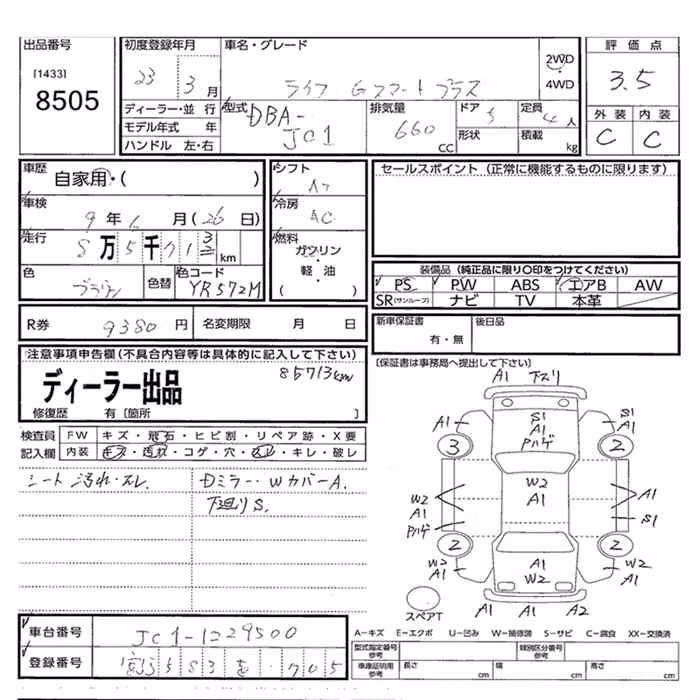 出品番号
[1433]
8505
初度登録年月
23 3 月
車名・グレード
ライフ Gスマートプラス
2WD
4WD
評価点
3.5
外装 内装
C C
ディーラー・並 行
モデル年式 年
ハンドル 左・右
型式
DBA-
JC1
排気量
660
CC
ドア
5
形状
定員
4 人
積載
kg
車歴
自家用・( )
車検
9 年 6 月 (26 日)
走行
8 万 5 千 7 1 3 km
色
ブラウン
色替
色コード
YR572M
シフト
AT
冷房
AC
燃料
ガソリン
・
軽・油
( )
セールスポイント (正常に機能するものに限ります)
装備品 (純正品に限り〇印をつけてください)
PS PW ABS エアB AW
SR(サンルーフ) ナビ TV 本革
R券 9380 円
名変期限 月 日
新車保証書
有・無
後日品
[保証書は事務局へ提出して下さい]
注意事項申告欄(不具合内容等は具体的に記入して下さい)
85713km
ディーラー出品
修復歴 有 [箇所 ]
検査員
記入欄
FW キズ・飛石・ヒビ割・リペア跡・X要
内装 キズ・汚れ・コゲ・穴・スレ・キレ・破レ
シート汚れ・スレ.
Dミラー・WカバーA.
下廻りS.
A1 下スリ
A1
S1
A1
Pハゲ
S1
A1
3
2
W2
A1
W2
A1
Pハゲ
A1
S1
2
2
W2
A1
A1
W2
W2
A1
スペアT
A1 A1 A2
A-キズ E-エクボ U-凹み W-補修跡 S-サビ C-腐食 XX-交換済
車台番号
JC1-1229500
登録番号
583 705
型式指定番号
参考
類別区分番号
参考
車庫証明用
参考
長さ cm
幅 cm
高さ cm